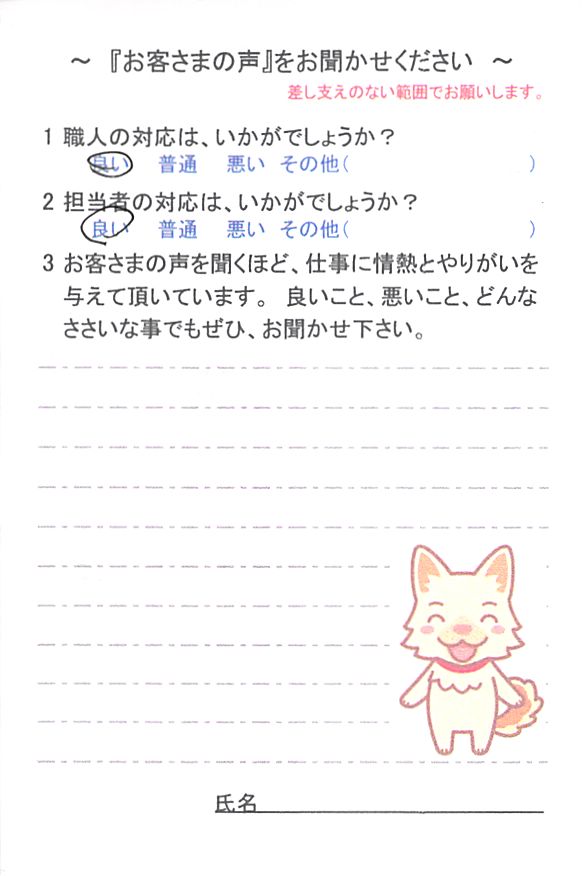 ～ 『お客さまの声』をお聞かせください ～
差し支えのない範囲でお願いします。
1 職人の対応は、いかがでしょうか？
良い 普通 悪い その他( )
2 担当者の対応は、いかがでしょうか？
良い 普通 悪い その他( )
3 お客さまの声を聞くほど、仕事に情熱とやりがいを
与えて頂いています。 良いこと、悪いこと、どんな
ささいな事でもぜひ、お聞かせ下さい。
氏名